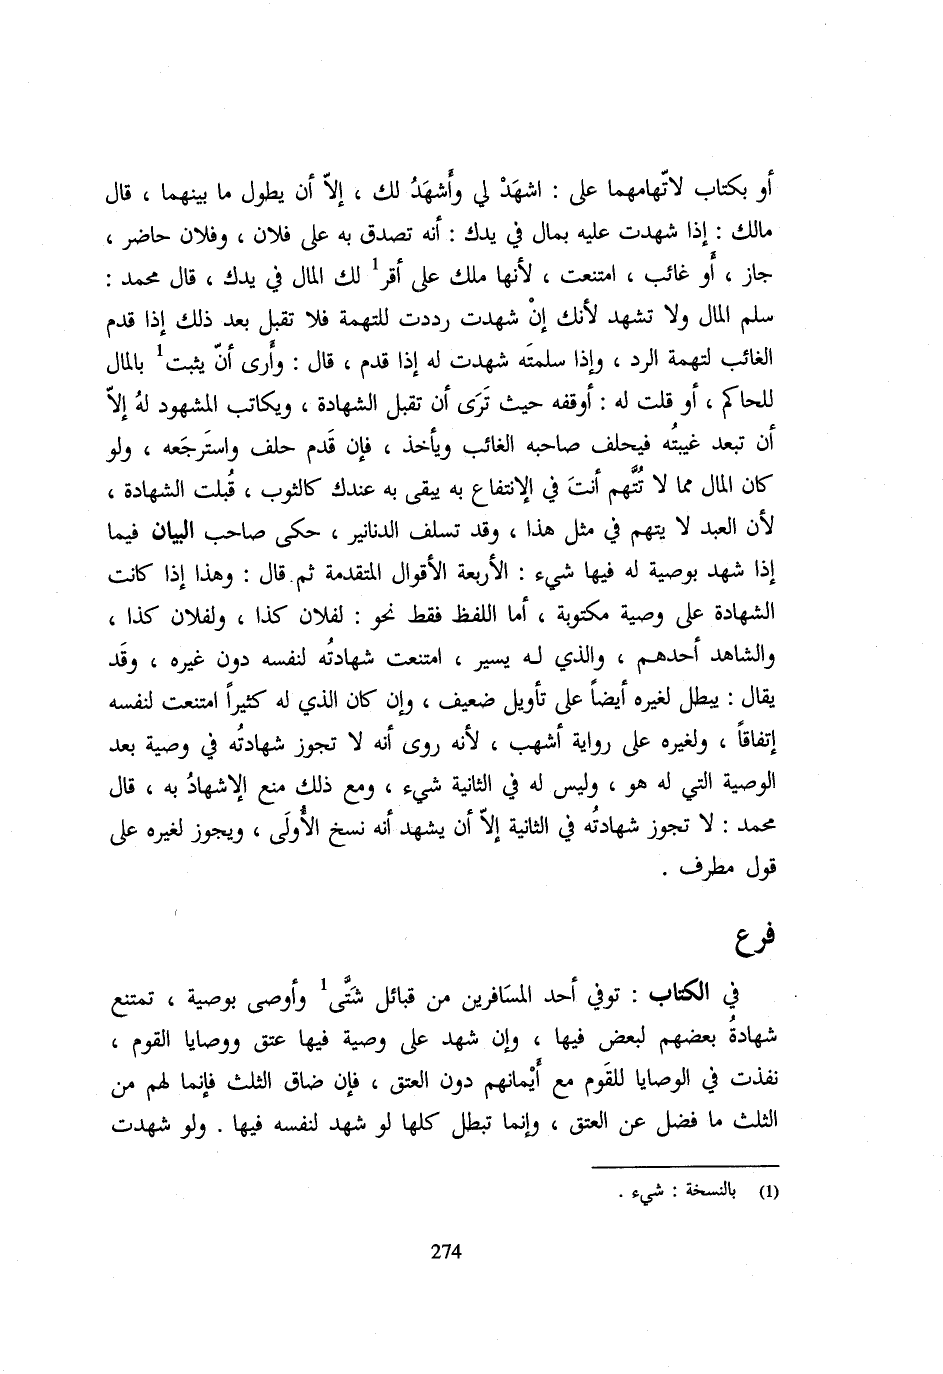 أو بكتاب لاتّهامهما على : اشهَدْ لي وأَشهَدُ لك ، إلاّ أن يطول ما بينهما ، قال
مالك : إذا شهدت عليه بمال في يدك : أنه تصدق به على فلان ، وفلان حاضر ،
جاز ، أَو غائب ، امتنعت ، لأنها ملك على أقر1 لك المال في يدك ، قال محمد :
سلم المال ولا تشهد لأنك إنْ شهدت رددت للتهمة فلا تقبل بعد ذلك إذا قدم
الغائب لتهمة الرد ، وإذا سلمتَه شهدت له إذا قدم ، قال : وأَرى أنّ يثبت1 بالمال
للحاكم ، أو قلت له : أوقفه حيث تَرَى أن تقبل الشهادة ، ويكاتب المشهود لهُ إلاّ
أن تبعد غيبتُه فيحلف صاحبه الغائب ويأخذ ، فإن قَدم حلف واستَرجَعه ، ولو
كان المال مما لا تُتَّهم أنتَ في الإنتفاع به يبقى به عندك كالثوب ، قُبلت الشهادة ،
لأن العبد لا يتهم في مثل هذا ، وقد تسلف الدنانير ، حكى صاحب البيان فيما
إذا شهد بوصية له فيها شيء : الأربعة الأقوال المتقدمة ثم قال : وهذا إذا كانت
الشهادة على وصية مكتوبة ، أما اللفظ فقط نحو : لفلان كذا ، ولفلان كذا ،
والشاهد أحدهم ، والذي له يسير ، امتنعت شهادتُه لنفسه دون غيره ، وقَد
يقال : يبطل لغيره أيضاً على تأويل ضعيف ، وإن كان الذي له كثيراً امتنعت لنفسه
إتفاقاً ، ولغيره على رواية أشهب ، لأنه روى أنه لا تجوز شهادتُه في وصية بعد
الوصية التي له هو ، وليس له في الثانية شيء ، ومع ذلك منع الإشهادُ به ، قال
محمد : لا تجوز شهادتُه في الثانية إلاّ أن يشهد أنه نسخ الأُولَى ، ويجوز لغيره على
قول مطرف .
فرع
في الكتاب : توفي أحد المسَافرين من قبائل شَتَّى1 وأوصى بوصية ، تمتنع
شهادةُ بعضهم لبعض فيها ، وإن شهد على وصية فيها عتق ووصايا القوم ،
نفذت في الوصايا للقَوم مع أَيْمانهم دون العتق ، فإن ضاق الثلث فإنما لهم من
الثلث ما فضل عن العتق ، وإنما تبطل كلها لو شهد لنفسه فيها . ولو شهدت
(1) بالنسخة : شيء .
274